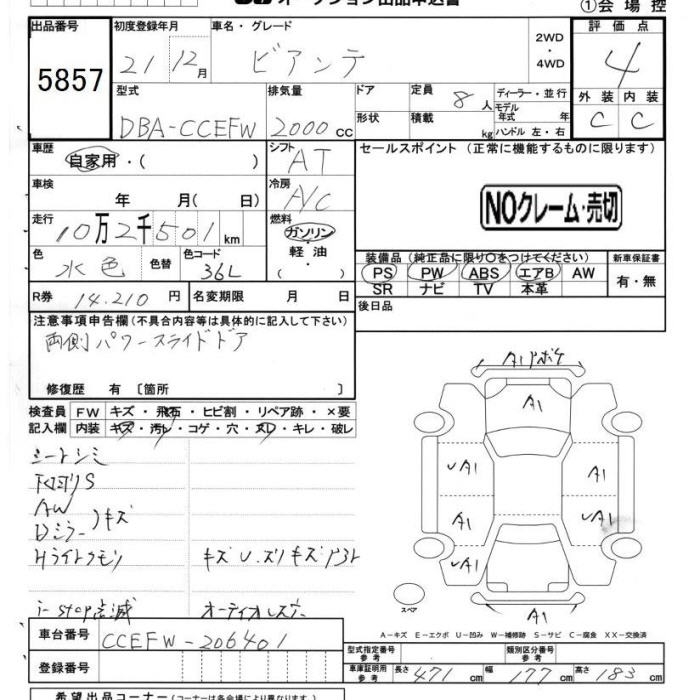 オークション出品申込書
①会場控
出品番号 初度登録年月 車名・グレード 2WD ・ 4WD 評価点
5857 21 12月 ビアンテ 4
型式 排気量 ドア 定員 8人 ディーラー・並行 外装 内装
DBA-CCEFW 2000cc 形状 積載 kg モデル年式 年 ハンドル 左・右 C C
車歴 自家用・( ) シフト AT セールスポイント (正常に機能するものに限ります)
車検 年 月( 日) 冷房 A/C
NOクレーム・売切
走行 10万2千501km 燃料 ガソリン・軽油・( )
色 水色 色替 色コード 36L
装備品 (純正品に限り○をつけてください) 新車保証書
PS PW ABS エアB AW 有・無
SR ナビ TV 本革
R券 14.210円 名変期限 月 日
後日品
注意事項申告欄(不具合内容等は具体的に記入して下さい)
両側パワースライドドア
修復歴 有 〔箇所 〕
検査員 FW キズ・飛石・ヒビ割・リペア跡・×要
記入欄 内装 キズ・汚レ・コゲ・穴・スレ・キレ・破レ
シートシミ
AW
Dミラー キズ
Hライトクモリ
i-stop点滅
A1
A1
UA1 A1
A1 UA1
UA1 A1
A1
スペア
A-キズ E-エクボ U-凹み W-補修跡 S-サビ C-腐食 XX-交換済
車台番号 CCEFW-206401
型式指定番号 参考 類別区分番号 参考
登録番号
車庫証明用 参考 長さ 471cm 幅 177cm 高さ 183cm
希望出品コーナー(出品コーナーは各会場により異なります)